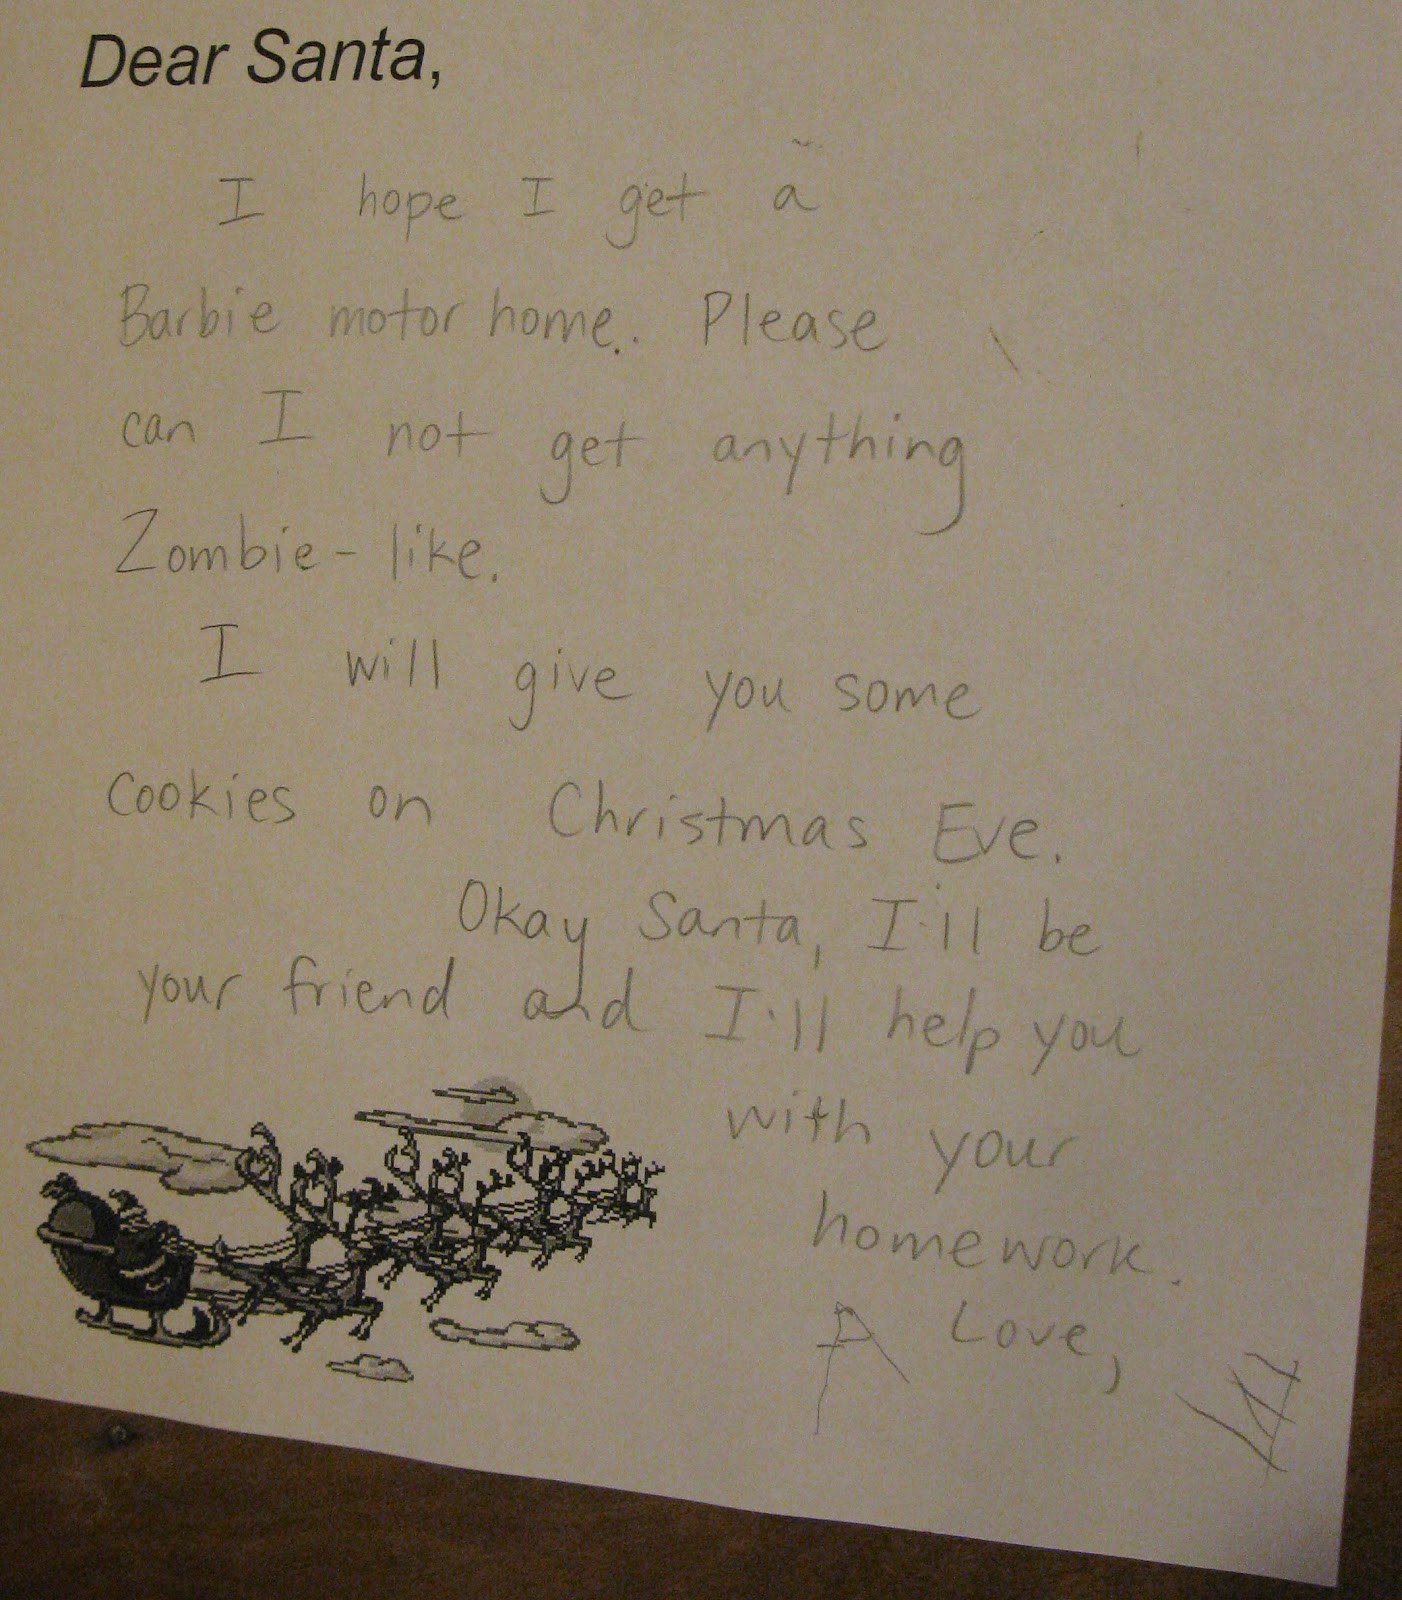 Dear Santa,
I hope I get a
Barbie motor home.. Please
can I not get anything
Zombie-like.
I will give you some
cookies on Christmas Eve.
Okay Santa, I'll be
your friend and I'll help you
with your
homework.
Love,